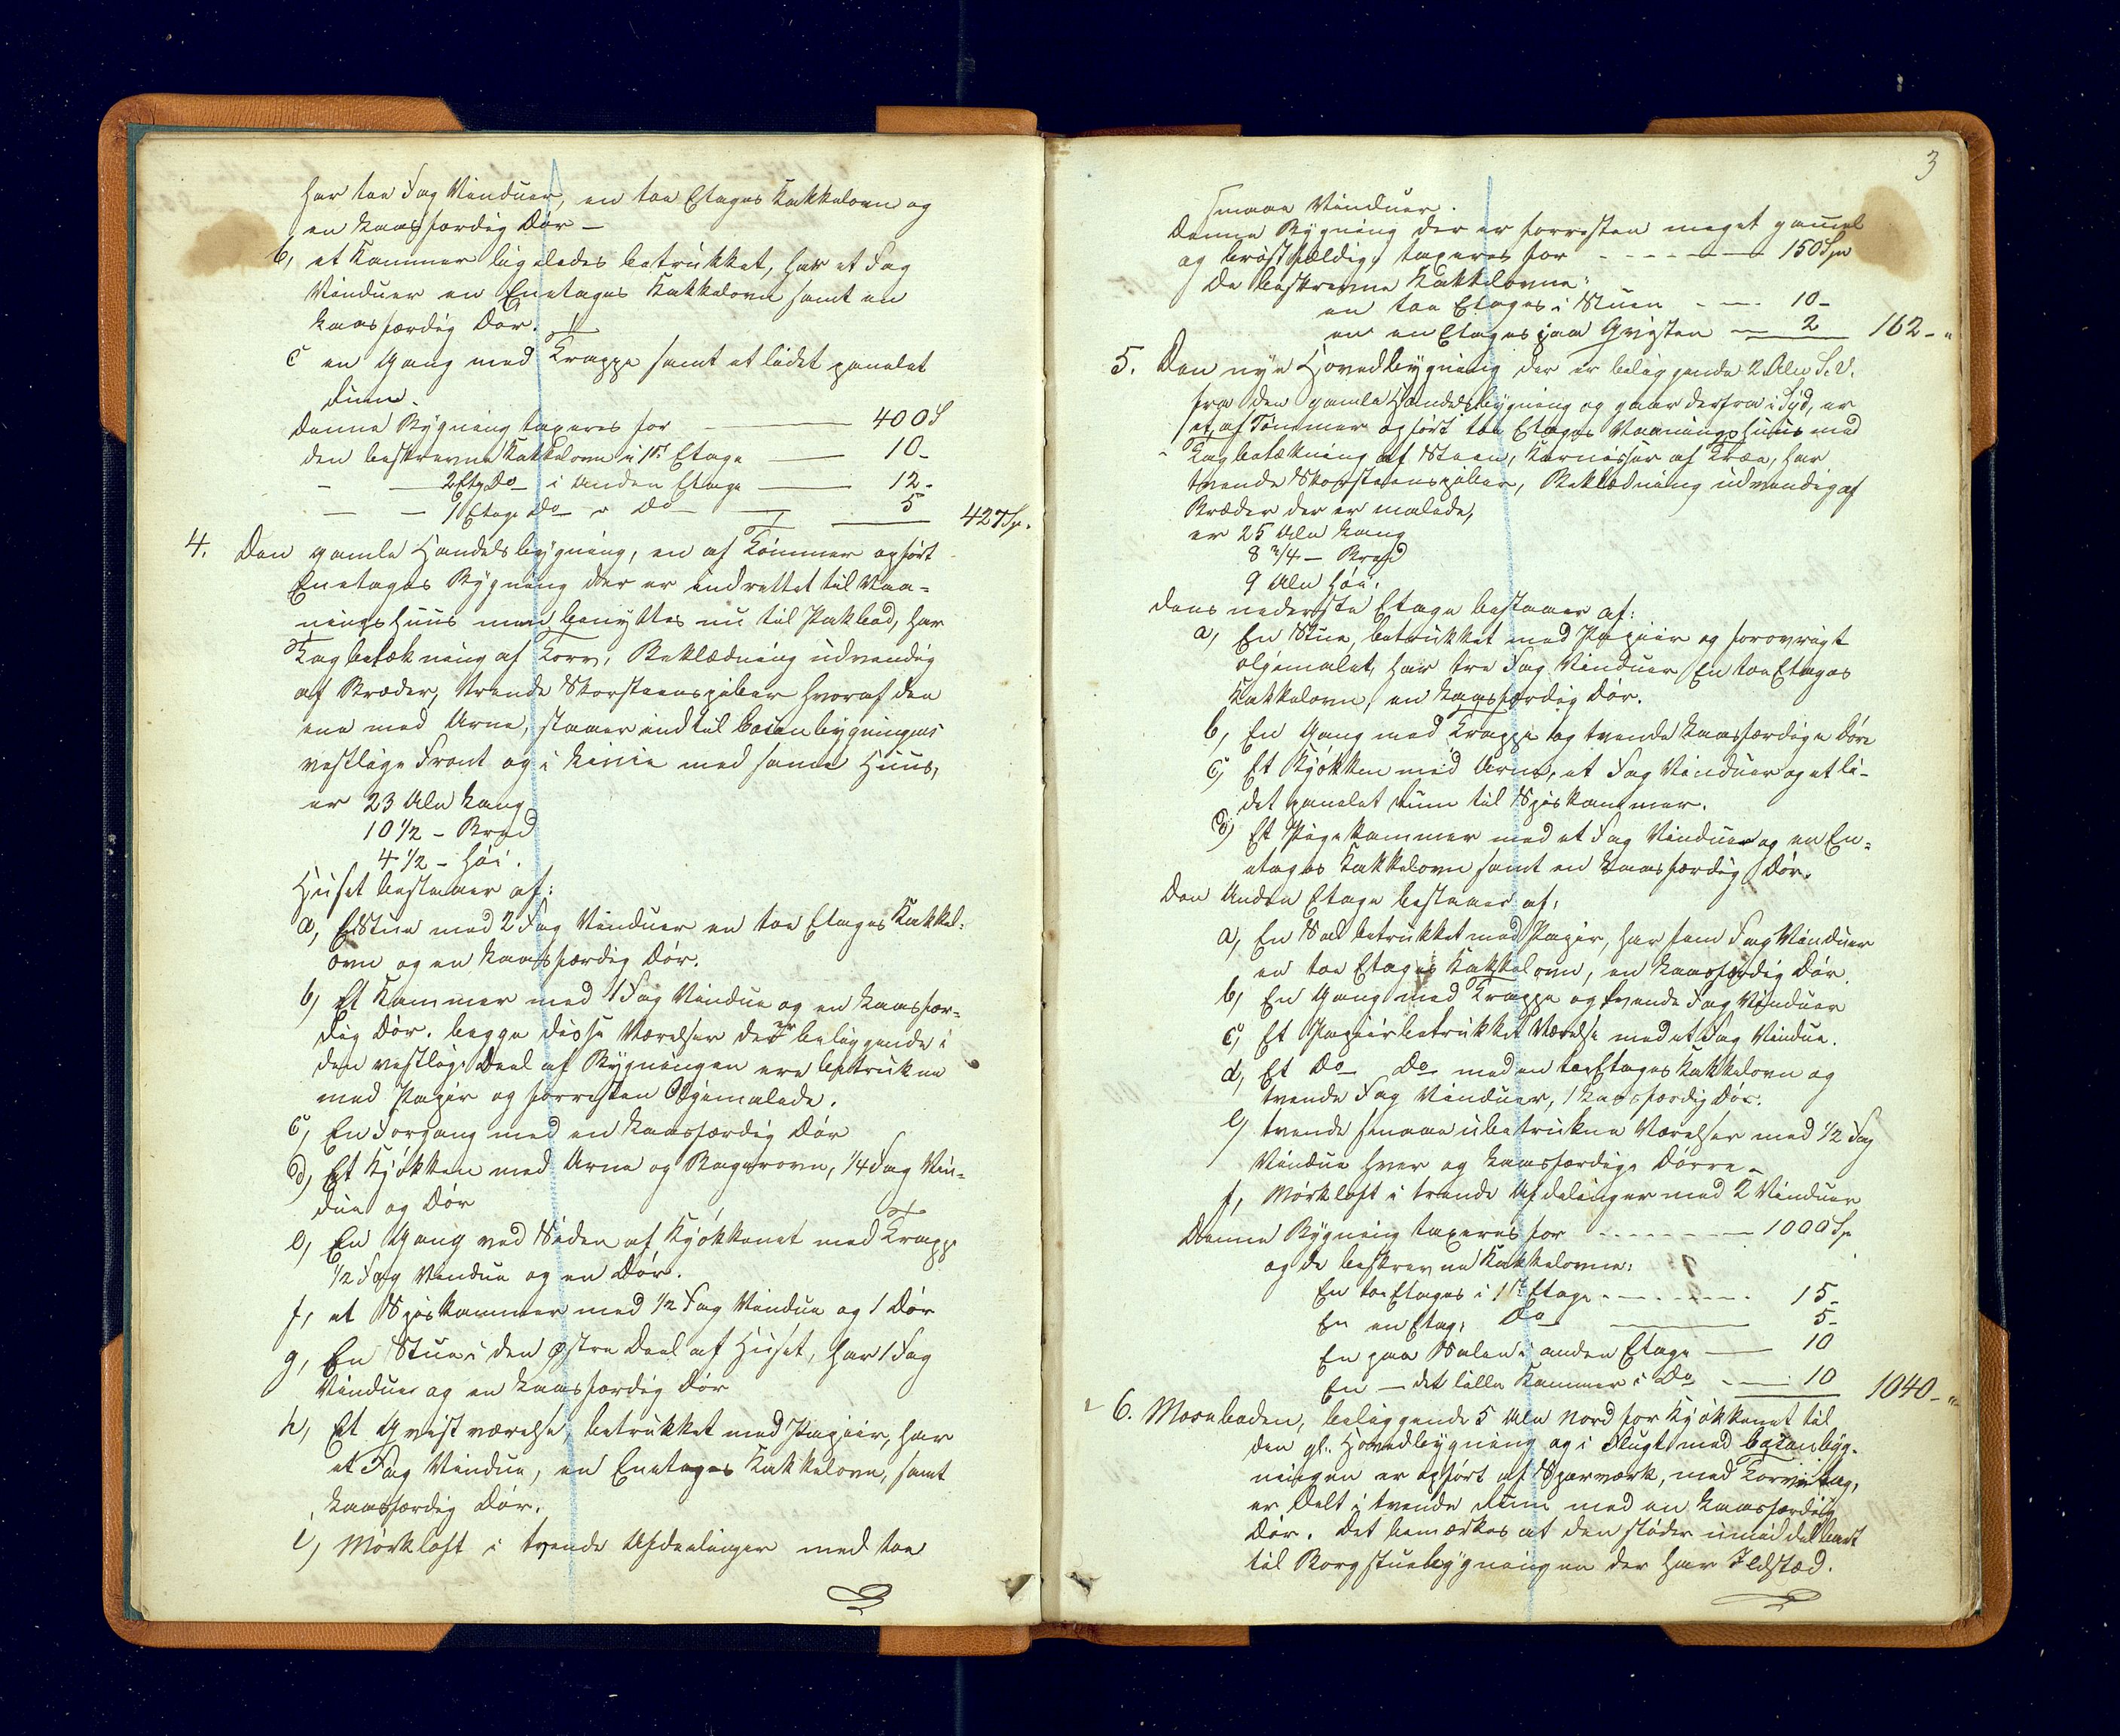 har toe Fag Vinduer, en toe Etages Kakkelovn og
en Laasfærdig Dör –
b, et Kammer ligeledes betrukket, har et Fag
Vinduer en Enetages Kakkelovn samt en
Laasfærdig Dör.
c en Gang med Trappe samt et lidet panelet
Rum.
Denne Bygning taxeres for 400 S
den beskrevne Kakkelovn i 1ste Etage 10 –
– — 2 Etg Do i Anden Etage 12 –
— — 1 Etage Do " Do 5 427 Sp.
4. Den gamle Handelsbygning, en af Tömmer opfört
Enetages Bygning der er indrettet til Vaa=
ningshuus men benyttes nu til Pakbod, har
Tagbetækning af Torv, Beklædning udvendig
af Bræder, trende Skorsteenspiber hvoraf den
ene med Arne, staaer ind til Boienbygningens
vestlige Front og i Linie med samme Huus,
er 23 Alen Lang
10 1/2 – Bred
4 1/2 – höi.
Huset bestaaer af:
a, En Stue med 2 Fag Vinduer en toe Etages Kakkel=
ovn og en Laasfærdig Dör.
b, Et Kammer med 1 Fag Vindue og en Laasfær=
dig Dör. begge disse Værelser der er beliggende i
den vestlige Deel af Bygningen ere betrukne
med Papir og forresten Oljemalede.
c, En Forgang med en Laasfærdig Dör
d, Et Kjökken med Arne og Bagerovn, 1/4 Fag Vin=
due og Dör
e, En Gang ved Siden af Kjökkenet med Trappe
1/2 Fag Vindue og en Dör.
f, et Spiskammer med 1/2 Fag Vindue og 1 Dör
g, En Stue i den østre Deel af Huset, har 1 Fag
Vinduer og en Laasfærdig Dör
h, Et Qvistværelse, betrukket med Papiir, har
et Fag Vindue, en Enetages Kakkelovn, samt
Laasfærdig Dör.
i, Mörkloft i tvende Afdeelinger med toe
3
smaae Vinduer.
Denne Bygning der er forresten meget gammel
og bröstfældig, taxeres for 150 Spd
De beskrevne Kakkelovne:
en toe Etages i Stuen 10 –
en en Etages paa Qvisten 2 162 – "
5. Den nye Hovedbygning der er beliggende 2 Alen S.V.
fra den gamle Handelsbygning og gaar derfra i Syd, er
et af Tömmer opfört toe Etages Vaaningshuus med
Tagbetækning af Steen, Karnisser af Træe, har
tvende Skorsteenspiber, Beklædning udvendig af
Bræder der er malede,
er 25 Alen Lang
8 3/4 – Bred
9 Alen höi.
Dens nederste Etage bestaaer af:
a, En Stue, betrukket med Papiir og forøvrigt
oljemalet, har tre Fag Vinduer En toe Etages
Kakkelovn, en Laasfærdig Dör.
b, En Gang med Trappe og tvende Laasfærdige Döre
c, Et Kjökken med Arne, et Fag Vinduer og et li-
det panelet rum til Spiskammer.
d, Et Pigekammer med et Fag Vinduer og en En=
etages Kakkelovn samt en Laasfærdig Dör.
Den Anden Etage bestaaer af:
a, En Sal betrukket med Papir, har fem Fag Vinduer
en toe Etages Kakkelovn, en Laasfærdig Dör.
b, En Gang med Trappe og tvende Fag Vinduer
c, Et Papiirbetrukket Værelse med et Fag Vindue.
d, Et Do Do med en toe Etages Kakkelovn og
tvende Fag Vinduer, 1 Laasfærdig Dör.
e, tvende smaae ubetrukne Værelser med 1/2 Fag
Vindue hver og Laasfærdige Dörre –
f, Mörkloft i trende Afdelinger med 2 Vinduer
Denne Bygning taxeres for 1000 Sp
og de beskrevne Kakkelovne:
En toe Etages i 1ste Etage 15 –
En en Etag: Do 5 –
En paa Salen i anden Etage 10
En – det lille Kammer i Do 10 1040 – "
6. Moseboden, beliggende 5 Alen Nord for Kjökkenet til
den gl. Hovedbygning og i Flugt med Boienbyg-
ningen er opfört af Sperværk, med Torvetag,
er Delt i tvende Rum med en Laasfærdig
Dör. Det bemærkes at den stöder umiddelbart
til Borgstuebygningen der har Ildstæd.